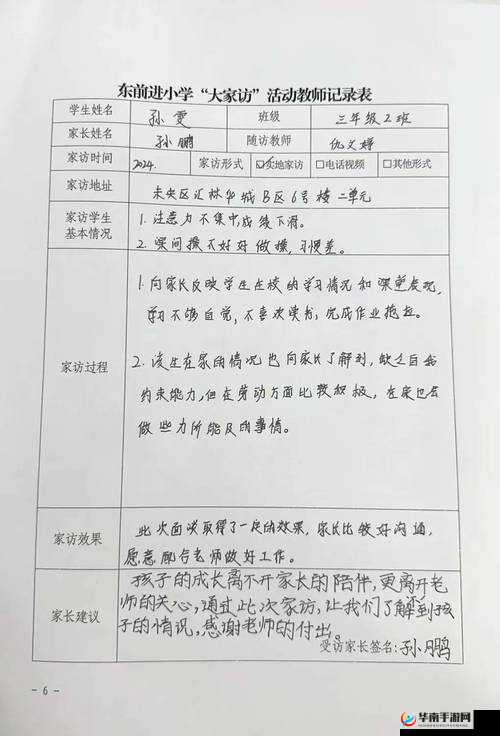 东前进小学“大家访”活动教师记录表
学生姓名 孙雯 班级 三年级2班
家长姓名 孙鹏 随访教师 仇文婷
家访时间 2024. 家访形式 ☑实地家访 □电话视频 □其他形式
家访地址 未央区汇林华城B区6号楼二单元
家访学生
基本情况
1. 注意力不集中,成绩下滑。
2. 课间操不好好做操,习惯差。
家访过程
1. 向家长反映学生在校的学习情况和课堂表现,
学习不够自觉,不喜欢读书,完成作业拖拉。
2. 该生在家的情况也向家长了解到,缺乏自我
约束能力,但在劳动方面比较积极,在家也会
做些力所能及的事情。
家访效果
此次面谈取得了一定的效果,家长比较好沟通,
愿意配合老师做好工作。
家长建议
孩子的成长离不开家长的陪伴,更离开老
师的关心,通过此次家访,让我们了解到孩
子的情况,感谢老师的付出。
受访家长签名:孙鹏
- 6 -
华南手游网